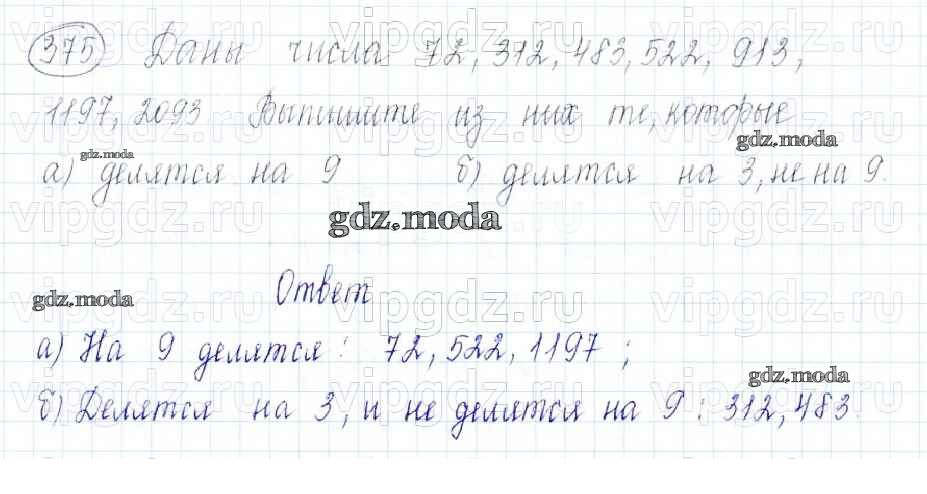 375 Даны числа 72, 312, 483, 522, 913,
1197, 2093 Выпишите из них те, которые
gdz.moda
gdz.moda
а) делятся на 9 б) делятся на 3, не на 9.
vipgdz.ru vipgdz.ru vipgdz.ru
gdz.moda
Ответ
gdz.moda
vipgdz.ru vipgdz.ru vipgdz.ru
а) На 9 делятся: 72, 522, 1197;
gdz.moda
б) Делятся на 3, и не делятся на 9: 312, 483.